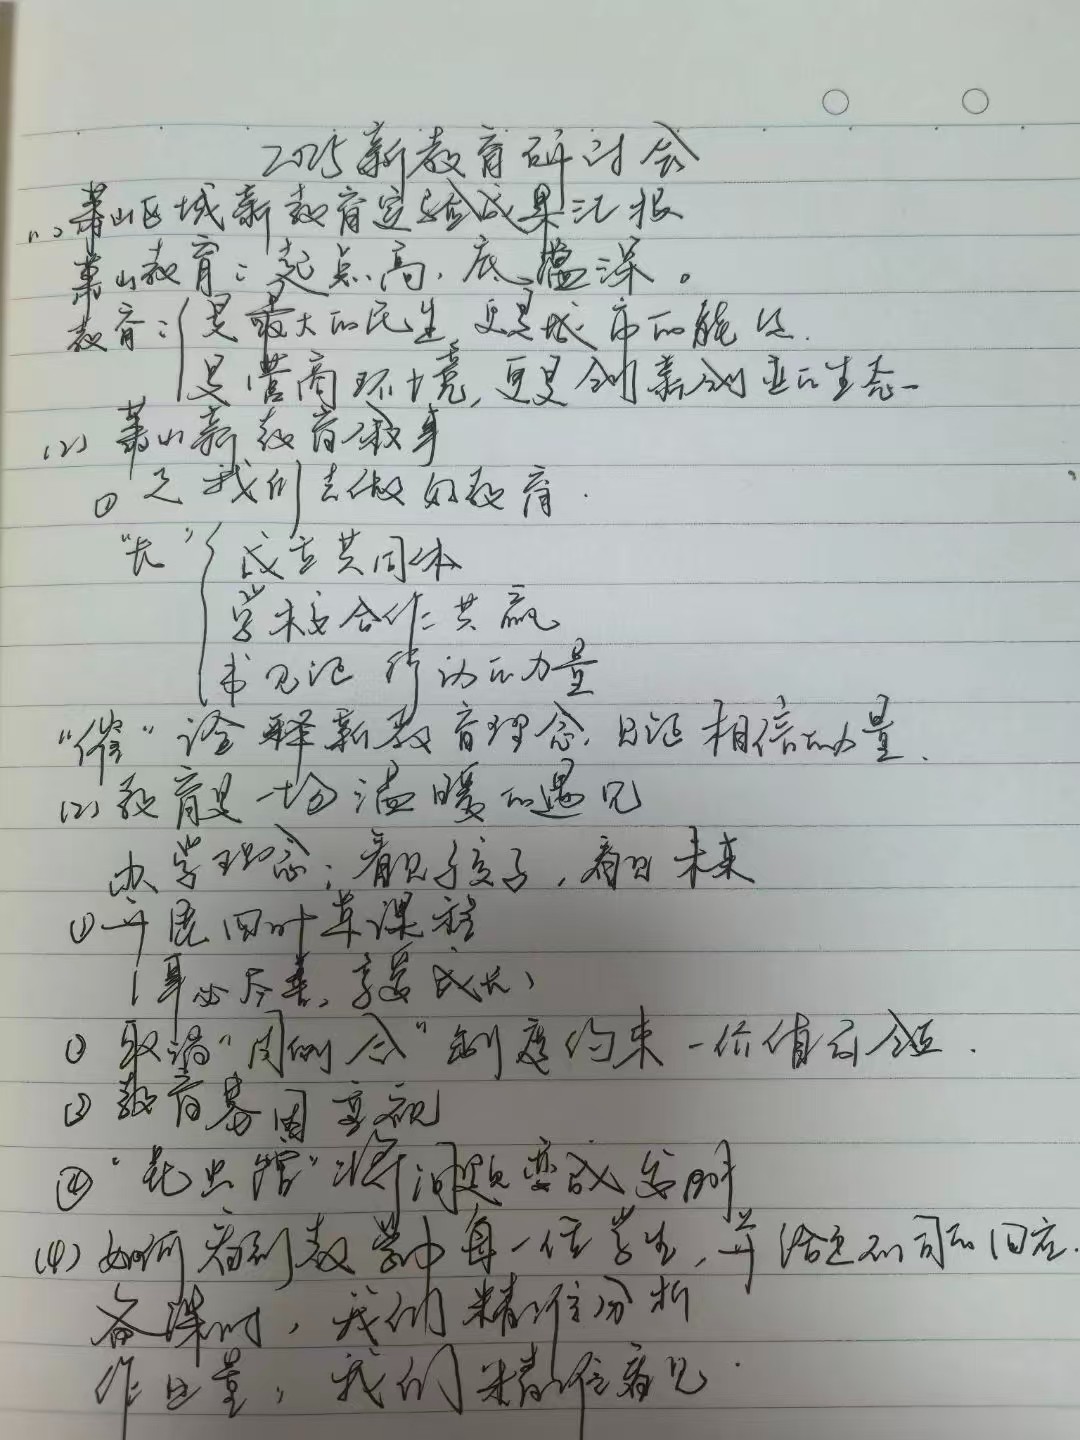 2025新教育研讨会
(1)萧山区域新教育实验成果汇报
萧山教育：起点高，底蕴深。
教育：是最大的民生，更是城市的能级.
是营商环境，更是创新创业的生态
(2) 萧山新教育叙事
① 是我们去做好教育.
成立共同体
学校合作：共赢
书见证 行动的力量
"催"诠释新教育理念，见证相信的力量.
(2) 教育是一场温暖的遇见
办学理念：看见孩子，看见未来
① 开展四叶草课程
事必尽善，享受成长
② 取消"周例会"制度约束一价值引领.
③ 教育基因
④ "昆虫馆"将问题变成发明
(4) 如何看到教学中每一位学生，并给他不同的回应.
备课时，我们精准分析
作业量，我们精准看见.